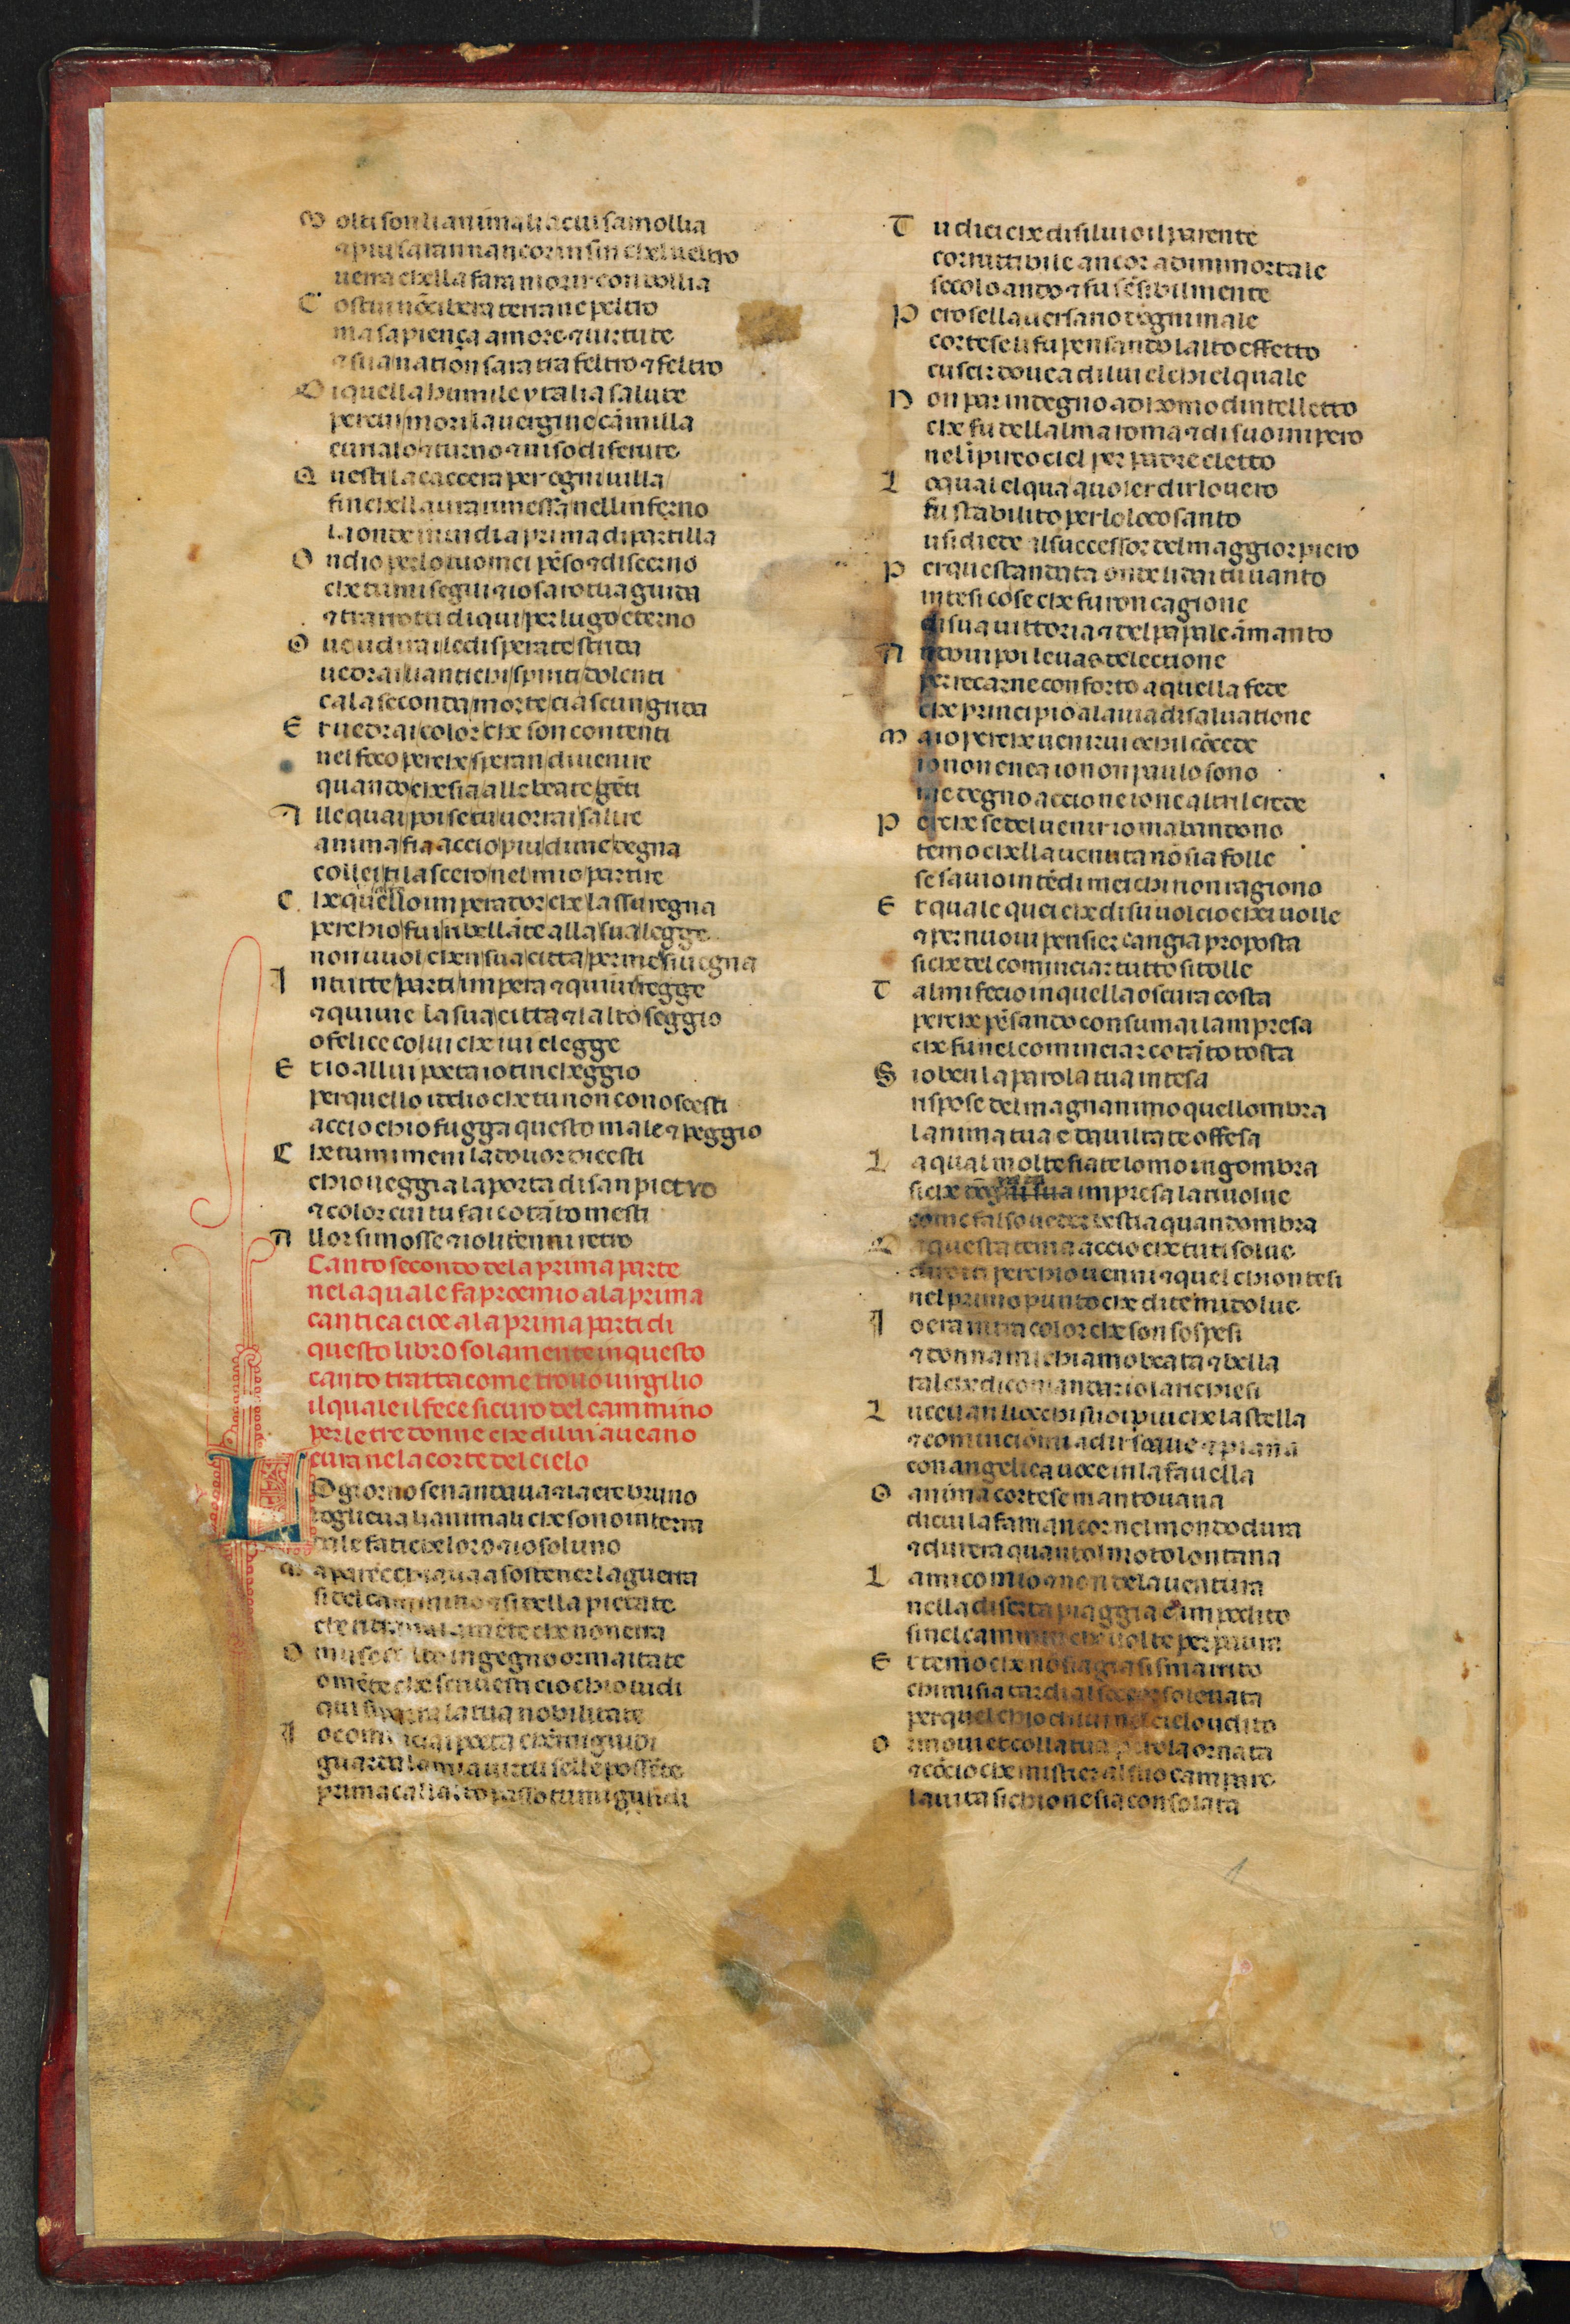 M olti son li animali a cui samollia
⁊ piu saranno ancor infin chel ueltro
uerra chella fara morir con dollia
C ostui nō cibera terra ne peltro
ma sapiença amore ⁊ uirtute
⁊ sua nation sara tra feltro ⁊ feltro
D i quella humile ytalia salute
per cui mori la uergine camilla
eurialo ⁊ turno ⁊ niso di ferute
Q uesti la caccera per ogni uilla
fin chellaura rimessa nellinferno
la onde inuidia prima dipartilla
O ndio per lo tuo mei pēso ⁊ discerno
che tu mi segui ⁊ io saro tua guida
⁊ trarrotti di qui per lugo eterno
O ue udirai le disperate strida
uedrai li antichi spiriti dolenti
ca la seconda morte ciascun grida
E t uedrai color che son contenti
nel foco perche speran di uenire
quando che sia alle beate gēti
A lle quai poi se tu uorrai salire
anima fia accio piu di me degna
collei ti lascero nel mio partire
C he quello imperador che lassu regna
perchio fui ribellāte alla sua legge
non uuol chen sua citta per me si uegna
I n tutte parti impera ⁊ quiui regge
⁊ quiui e la sua citta ⁊ lalto seggio
o felice colui che iui elegge
E t io allui poeta io ti ncheggio
per quello idio che tu non conoscesti
accio chio fugga questo male ⁊ peggio
C he tu mi meni la doue or dicesti
chio ueggia la porta di san pietro
⁊ color cui tu fai cotāto mesti
A llor si mosse ⁊ io li tenni retro
Canto secondo de la prima parte
ne la quale fa proemio a la prima
cantica cioe a la prima parti di
questo libro solamente in questo
canto tratta come trouo uirgilio
il quale il fece sicuro del cammino
per le tre donne che di lui aueano
cura ne la corte del cielo
LO giorno senandaua ⁊ laere bruno
toglieua li animali che sono in terra
da le fatiche loro ⁊ io sol uno
M apparecchiaua a sostener la guerra
si del cammino ⁊ si della pietate
che ritrarra la mēte che non erra
O muse o alto ingegno or maitate
o mēte che scriuesti cio chio uidi
qui si parra la tua nobilitate
I o cominciai poeta che mi guidi
guarda la mia uirtu selle possēte
prima calalto passo tu mi guidi
T u dici che di siluio il parente
corruttibile ancor ad immortale
secolo ando ⁊ fu sēsibilmente
P ero sellauersario dogni male
cortese li fu pensando lalto effetto
cuscir douea di lui el chi el quale
N on par indegno ad homo dintelletto
che fu dellalma roma ⁊ di suo impero
nelipireo ciel per padre eletto
L o quale el qual a uoler dir lo uero
fu stabilito per lo loco santo
u siede il successor del maggior piero
P er questandata onde li dai tu uanto
intesi cose che furon cagione
di sua uittoria ⁊ del papale amanto
A ndoui poi lo uas delectione
per recarne conforto a quella fede
che principio a la uia di saluatione
M a io perche uenirui o chil cōcede
io non enea io non paulo sono
me degno accio ne io ne altri l crede
P erche se del uenir io mabandono
temo chella uenuta nō sia folle
se sauio intēdi mei chi non ragiono
E t quale quei che disuuol cio che uolle
⁊ per nuoui pensier cangia proposta
si che del cominciar tutto si tolle
T al mi fecio in quella oscura costa
perche pēsando consumai lampresa
che fu nel cominciar cotāto tosta
S io ben la parola tua intesa
rispose del magnanimo quellombra
lanima tua e da uiltate offesa
L a qual molte fiate lomo ingombra
si che impresa la riuolue
come falso ueder bestia quandombra
D a questa tema accio che tu ti solue
dirotti perchio uenni ⁊ quel chio ntesi
nel primo punto che di te mi dolue
I o era intra color che son sospesi
⁊ donna mi chiamo beata ⁊ bella
tal che di comandar io la richiesi
L uceuan li occhi suoi piu che la stella
⁊ cominciomi a dir soaue ⁊ piana
con angelica uoce in la fauella
O anima cortese mantouana
di cui la fama ancor nel mondo dura
⁊ durera quanto l moto lontana
L amico mio ⁊ non de la uentura
nella diserta piaggia e impedito
si nel cammin che uolte per paura
E t temo che nō sia gia si smarrito
chi mi sia tardi al soccorso leuata
per quel chio di lui nel cielo udito
O r moui et colla tua parola ornata
⁊ cō cio che mistier al suo campare
laiuta si chio ne sia consolata